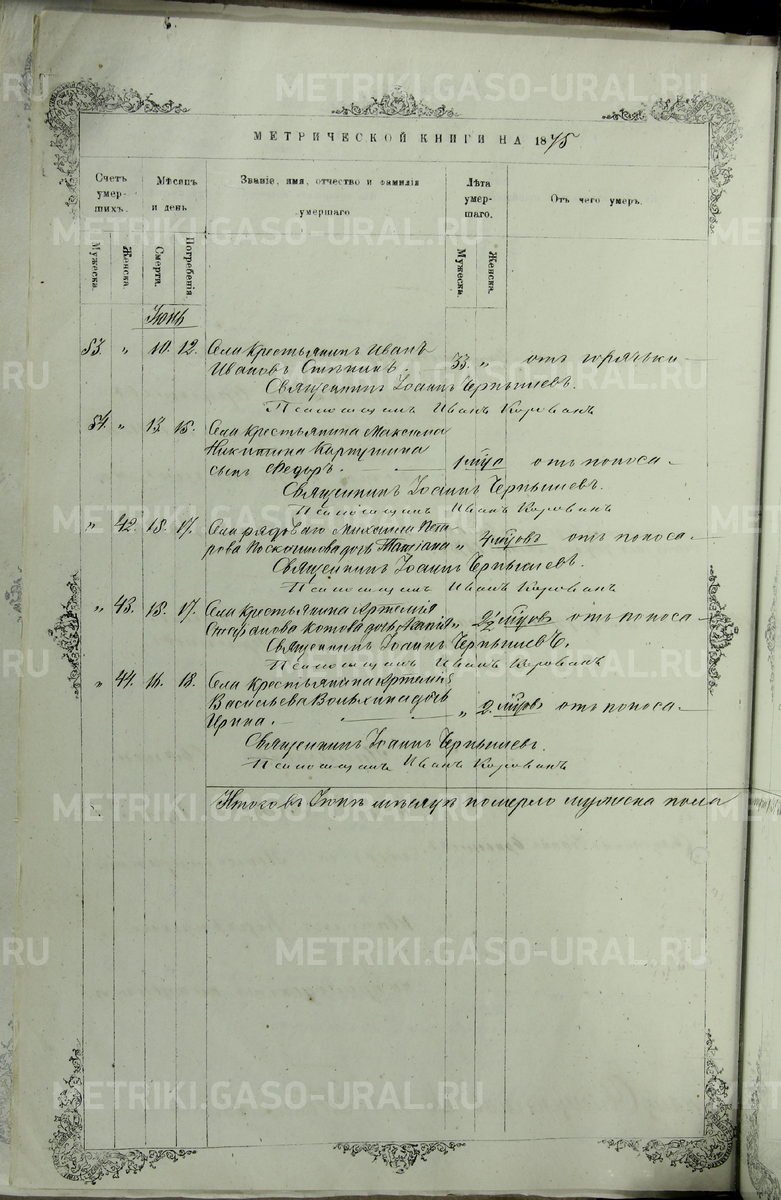 METRIKI.GASO-URAL.RU
МЕТРИЧЕСКОЙ КНИГИ НА 1875
Счетъ умер-шихъ.
Мѣсяцъ и день
Званіе, имя, отчество и фамилія умершаго
Лѣта умер-шаго.
Отъ чего умеръ.
Мужеска. Женска. Смерти. Погребенія Мужеска. Женска.
Іюнь
53. „ 10. 12. Села крестьянинъ Иванъ
Ивановъ 33. „ отъ горячьки
Священникъ Іоаннъ Чернышевъ.
Псаломщикъ Иванъ Корованъ
54. „ 13. 15. Села крестьянина Максима
Никитина Карпушина
сынъ Федоръ. 1 мца отъ поноса
Священникъ Іоаннъ Чернышевъ.
Псаломщикъ Иванъ Корованъ
„ 42. 15. 17. Села рядоваго Михаила Пет
рова дочь Татіана „ 4 мцовъ отъ поноса
Священникъ Іоаннъ Чернышевъ.
Псаломщикъ Иванъ Корованъ
„ 43. 15. 17. Села крестьянина Артемія
Стефанова Котова дочь „ 2½ мцовъ отъ поноса
Священникъ Іоаннъ Чернышевъ.
Псаломщикъ Иванъ Корованъ
„ 44. 16. 18. Села крестьянина Артемія
Васильева дочь
Ирина. „ 2 мцовъ отъ поноса
Священникъ Іоаннъ Чернышевъ.
Псаломщикъ Иванъ Корованъ
Итого въ Іюнѣ мѣсяцѣ померло мужеска пола